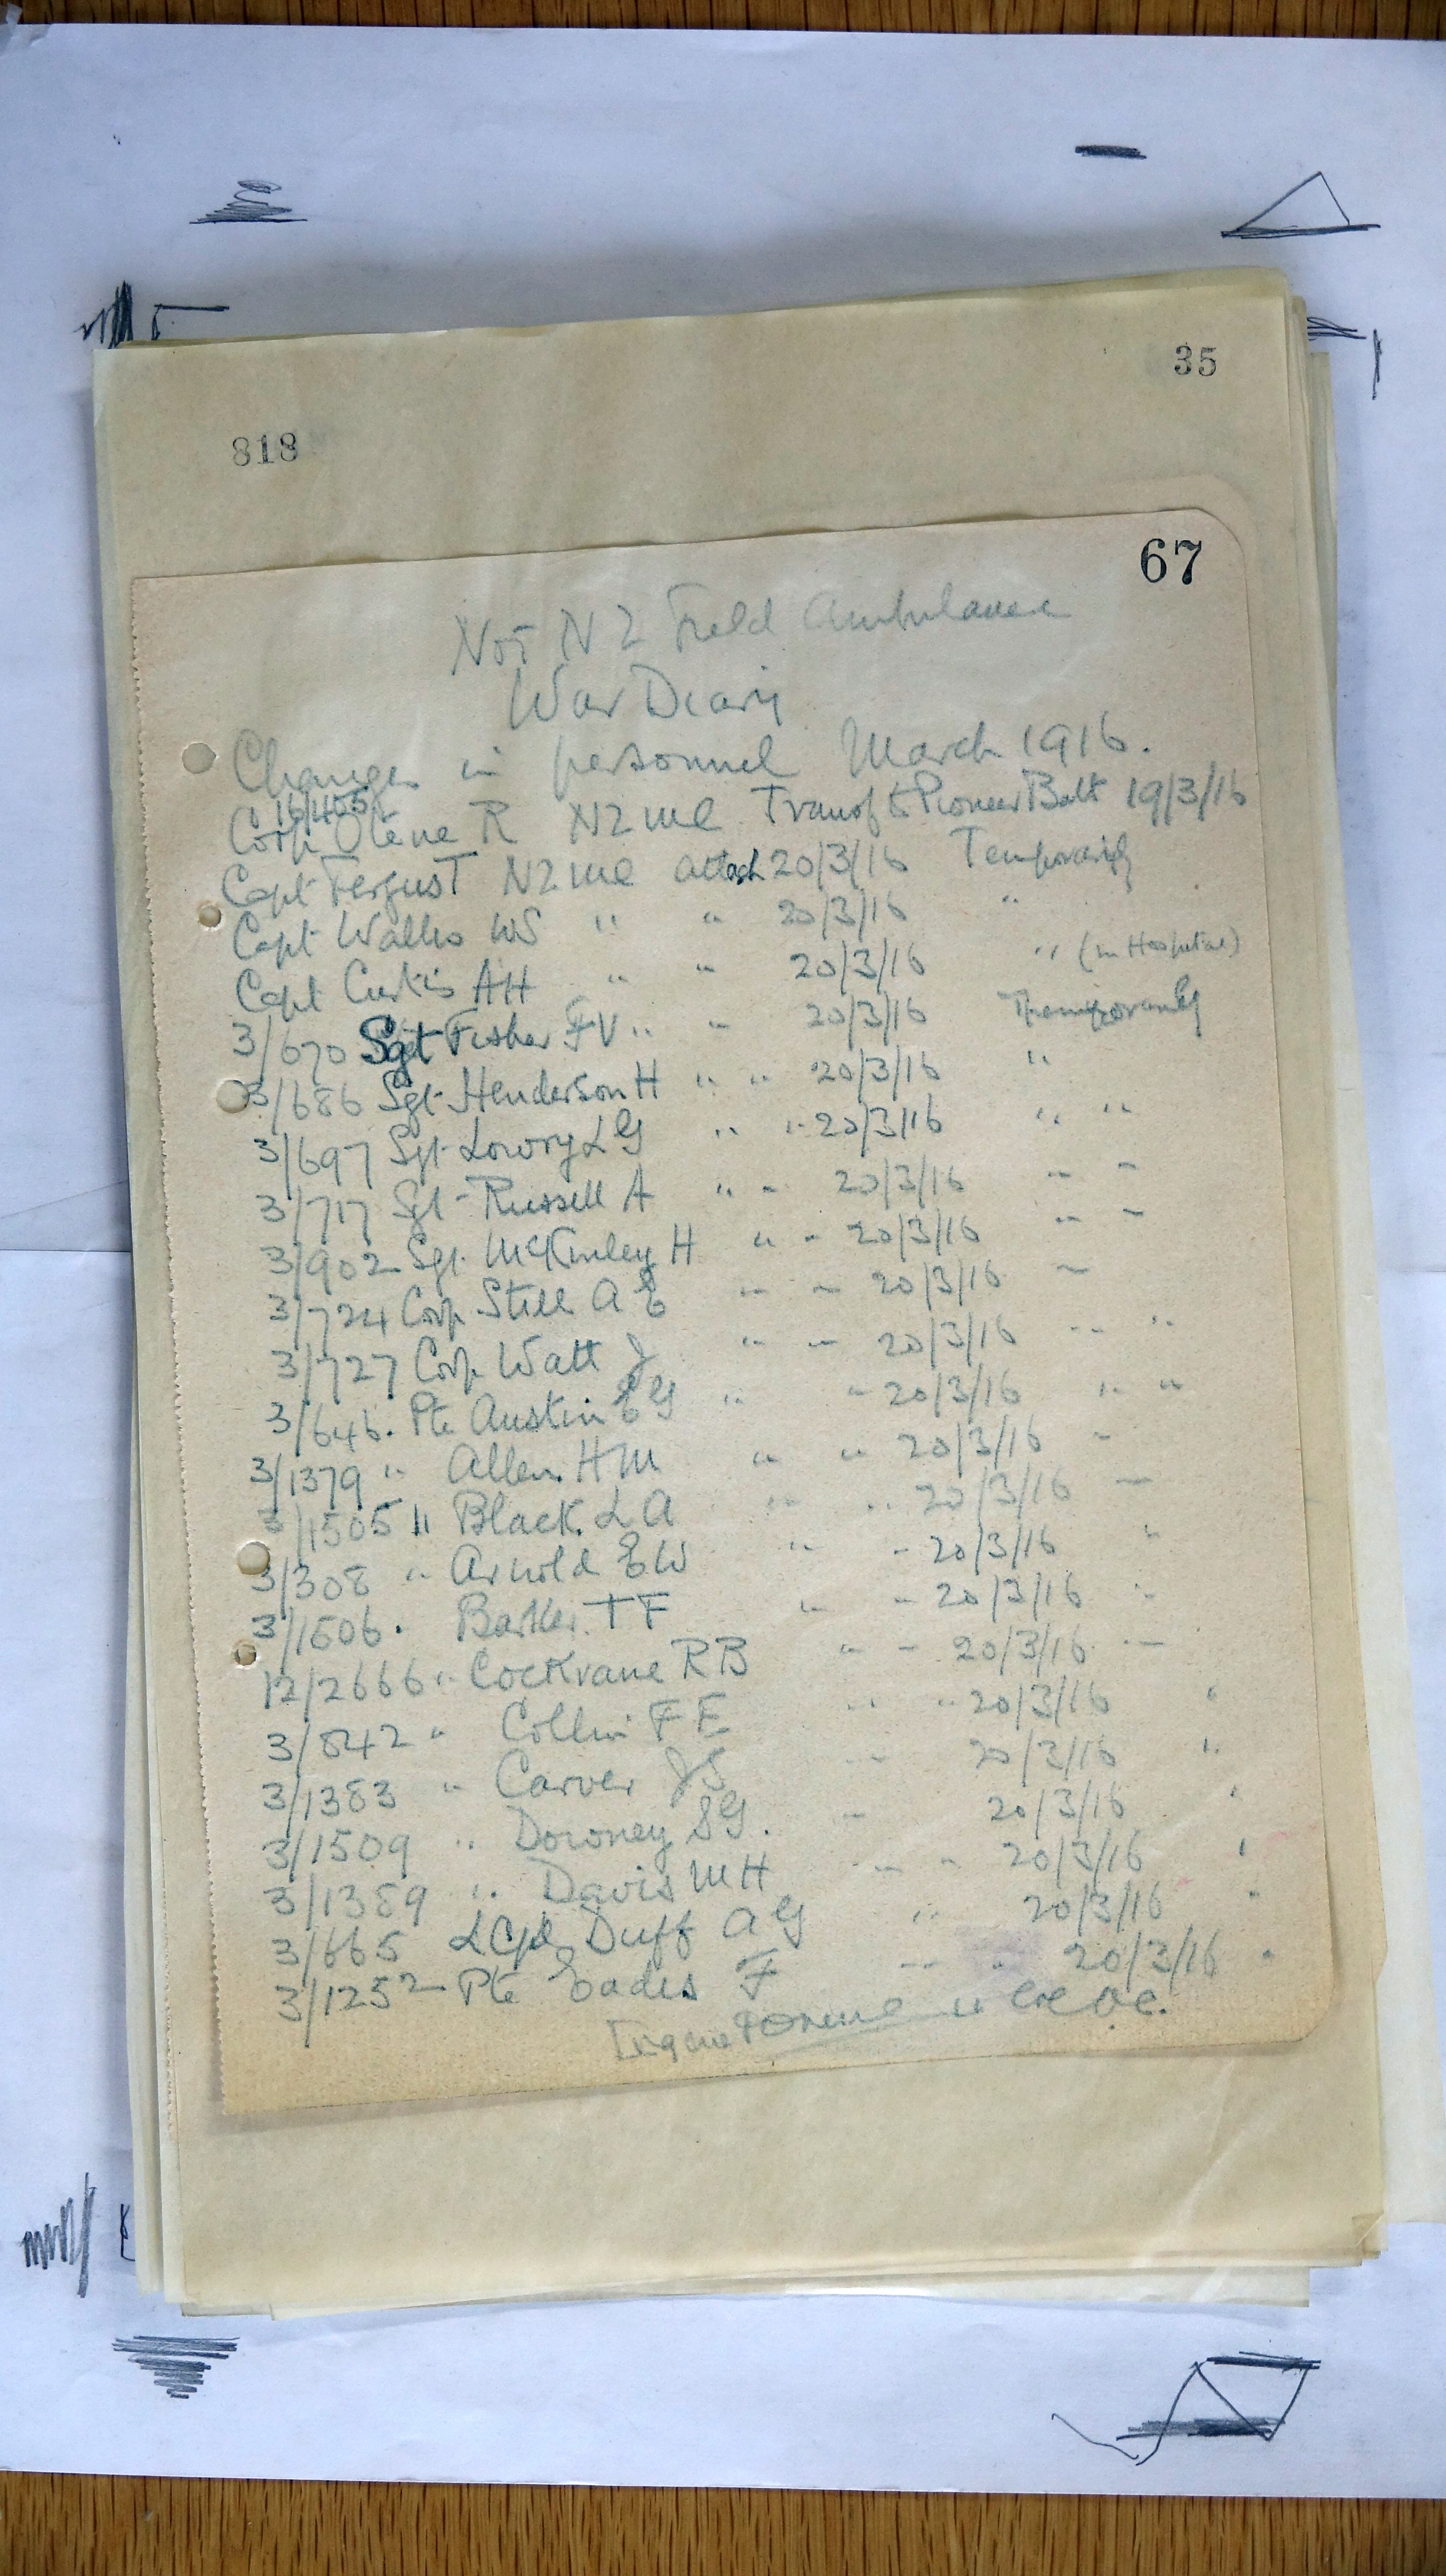 35
818
67
No 1 N Z Field Ambulance
War Diary
Changes in personnel March 1916.
16/405
Corp Otene R NZMC Transf to Pioneer Batt 19/3/16
Capt Fergus T NZMC attach 20/3/16 Temporarily
Capt Wallis WS " " 20/3/16 "
Capt Curtis AH " " 20/3/16 " (in Hospital)
3/670 Sgt Fisher FV " " 20/3/16 Temporarily
3/686 Sgt Henderson H " " 20/3/16 "
3/697 Sgt Lowry LG " " 20/3/16 " "
3/717 Sgt Russell A " " 20/3/16 " "
3/902 Sgt McKinley H " " 20/3/16 " "
3/724 Corp Still A E " " 20/3/16 "
3/727 Corp Watt J " " 20/3/16 " "
3/646. Pte Austin E G " " 20/3/16 " "
3/1379 " Allen. H M " " 20/3/16 "
3/1505 " Black. L A " " 20/3/16 "
3/308 " Arnold E W " " 20/3/16 "
3/1506. Barker. T F " " 20/3/16 "
12/2666 " Cockrane R B " " 20/3/16 "
3/842 " Collin F E " " 20/3/16 "
3/1383 " Carver J S " 20/3/16 "
3/1509 " Downey S G. " 20/3/16 "
3/1389 " Davis M H " " 20/3/16 "
3/665 L Cpl Duff A G " 20/3/16 "
3/1252 Pte Eades F " " 20/3/16 "